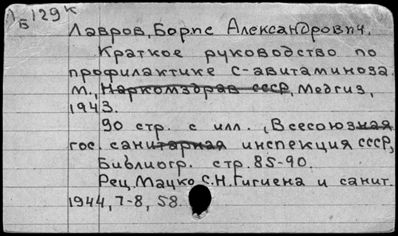 Л Б 129к
Лавров, Борис Александрович.
Краткое руководство по
профилактике С-авитаминоза.
М., Наркомздрав СССР, Медгиз,
1943.
90 стр. с илл., Всесоюзная
гос. санитарная инспекция СССР,
Библиогр. стр. 85-90.
Рец. Мацко С.Н. Гигиена и санит.
1944, 7-8, 58.